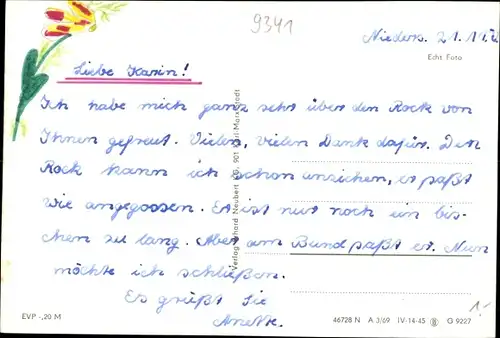 9341
Nieders. 21.11.
Echt Foto
Liebe Karin!
Ich habe mich ganz sehr über den Rock von
Ihnen gefreut. Vielen, vielen Dank dafür. Den
Rock kann ich schon anziehen, er paßt
wie angegossen. Er ist nur noch ein bis-
chen zu lang. Aber am Bund paßt er. Nun
möchte ich schließen.
Es grüßt Sie
Anette.
Verlag Gerhard Neubert KG, 901 Karl-Marx-Stadt
EVP -,20 M
46728 N A 3/69 IV-14-45 G 9227
1.-